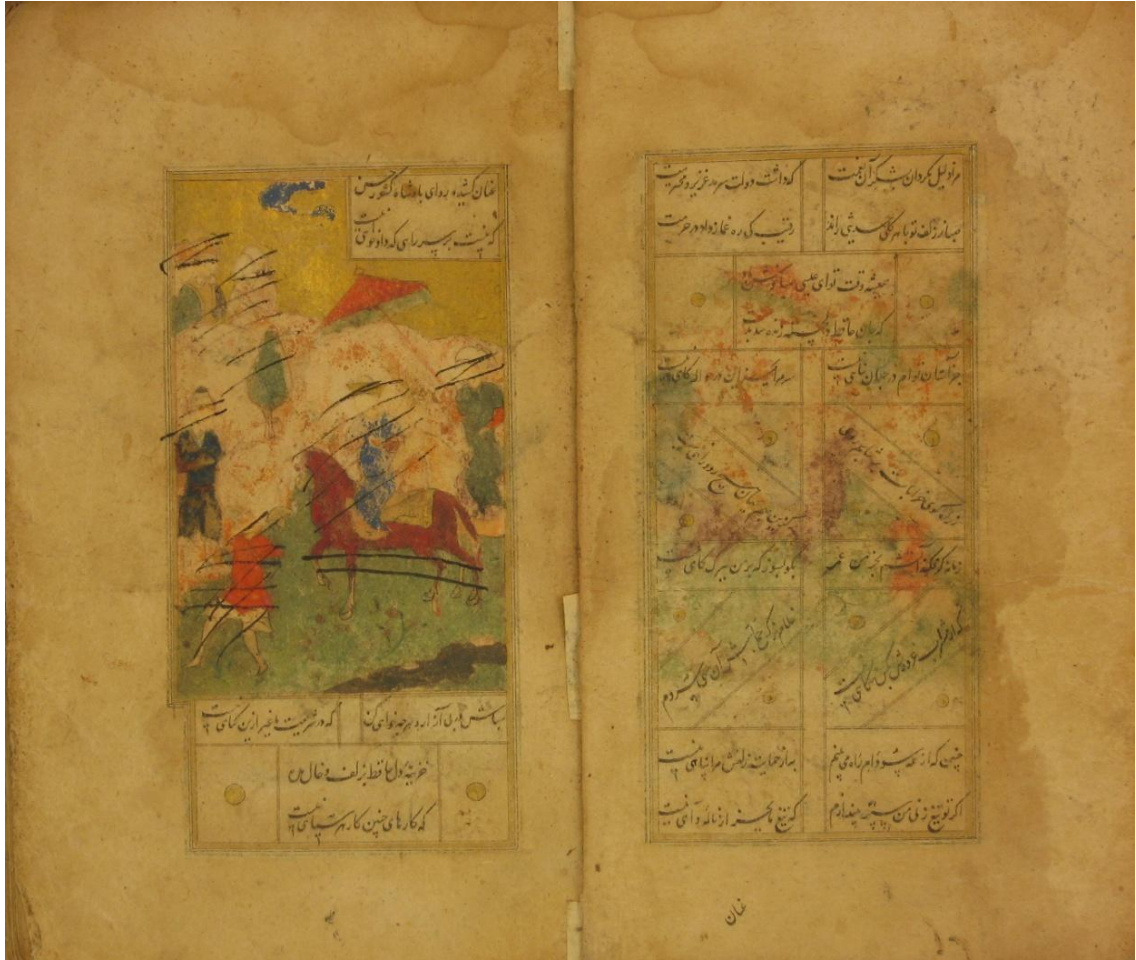 مرا ذلیل مگردان بشکر آن نعمت که داشت دولت سرمد عزیز و محترمت
صبا ز زلف تو با هر گلی حدیثی راند رقیب کی ره غماز داد در حرمت
همیشه وقت تو ای عیسی صبا خوش باد
که جان حافظ دلخسته زنده شد بدمت
جز آستان توام در جهان پناهی نیست سر مرا بجز این در حواله گاهی نیست
کوی خرابات
هیچ راهی نیست
زمانه گر فکند آتشم بخرمن عمر بگو بسوز که بر من ببرگ کاهی نیست
غلام نرگس جماش آن سهی سروم
که از شراب غرورش بکس نگاهی نیست
چنین که از همه سو دام راه می بینم به از حمایت زلفش مرا پناهی نیست
اگر تو تیغ زنی من سپر بیندازم که تیغ ما بجز از ناله و آهی نیست
عنان
عنان کشیده رو ای پادشاه کشور حسن
که نیست بر سر راهی که دادخواهی نیست
مباش در پی آزار و هر چه خواهی کن که در شریعت ما غیر ازین گناهی نیست
خزینه دل حافظ بزلف و خال مده
که کارهای چنین کار هر سیاهی نیست